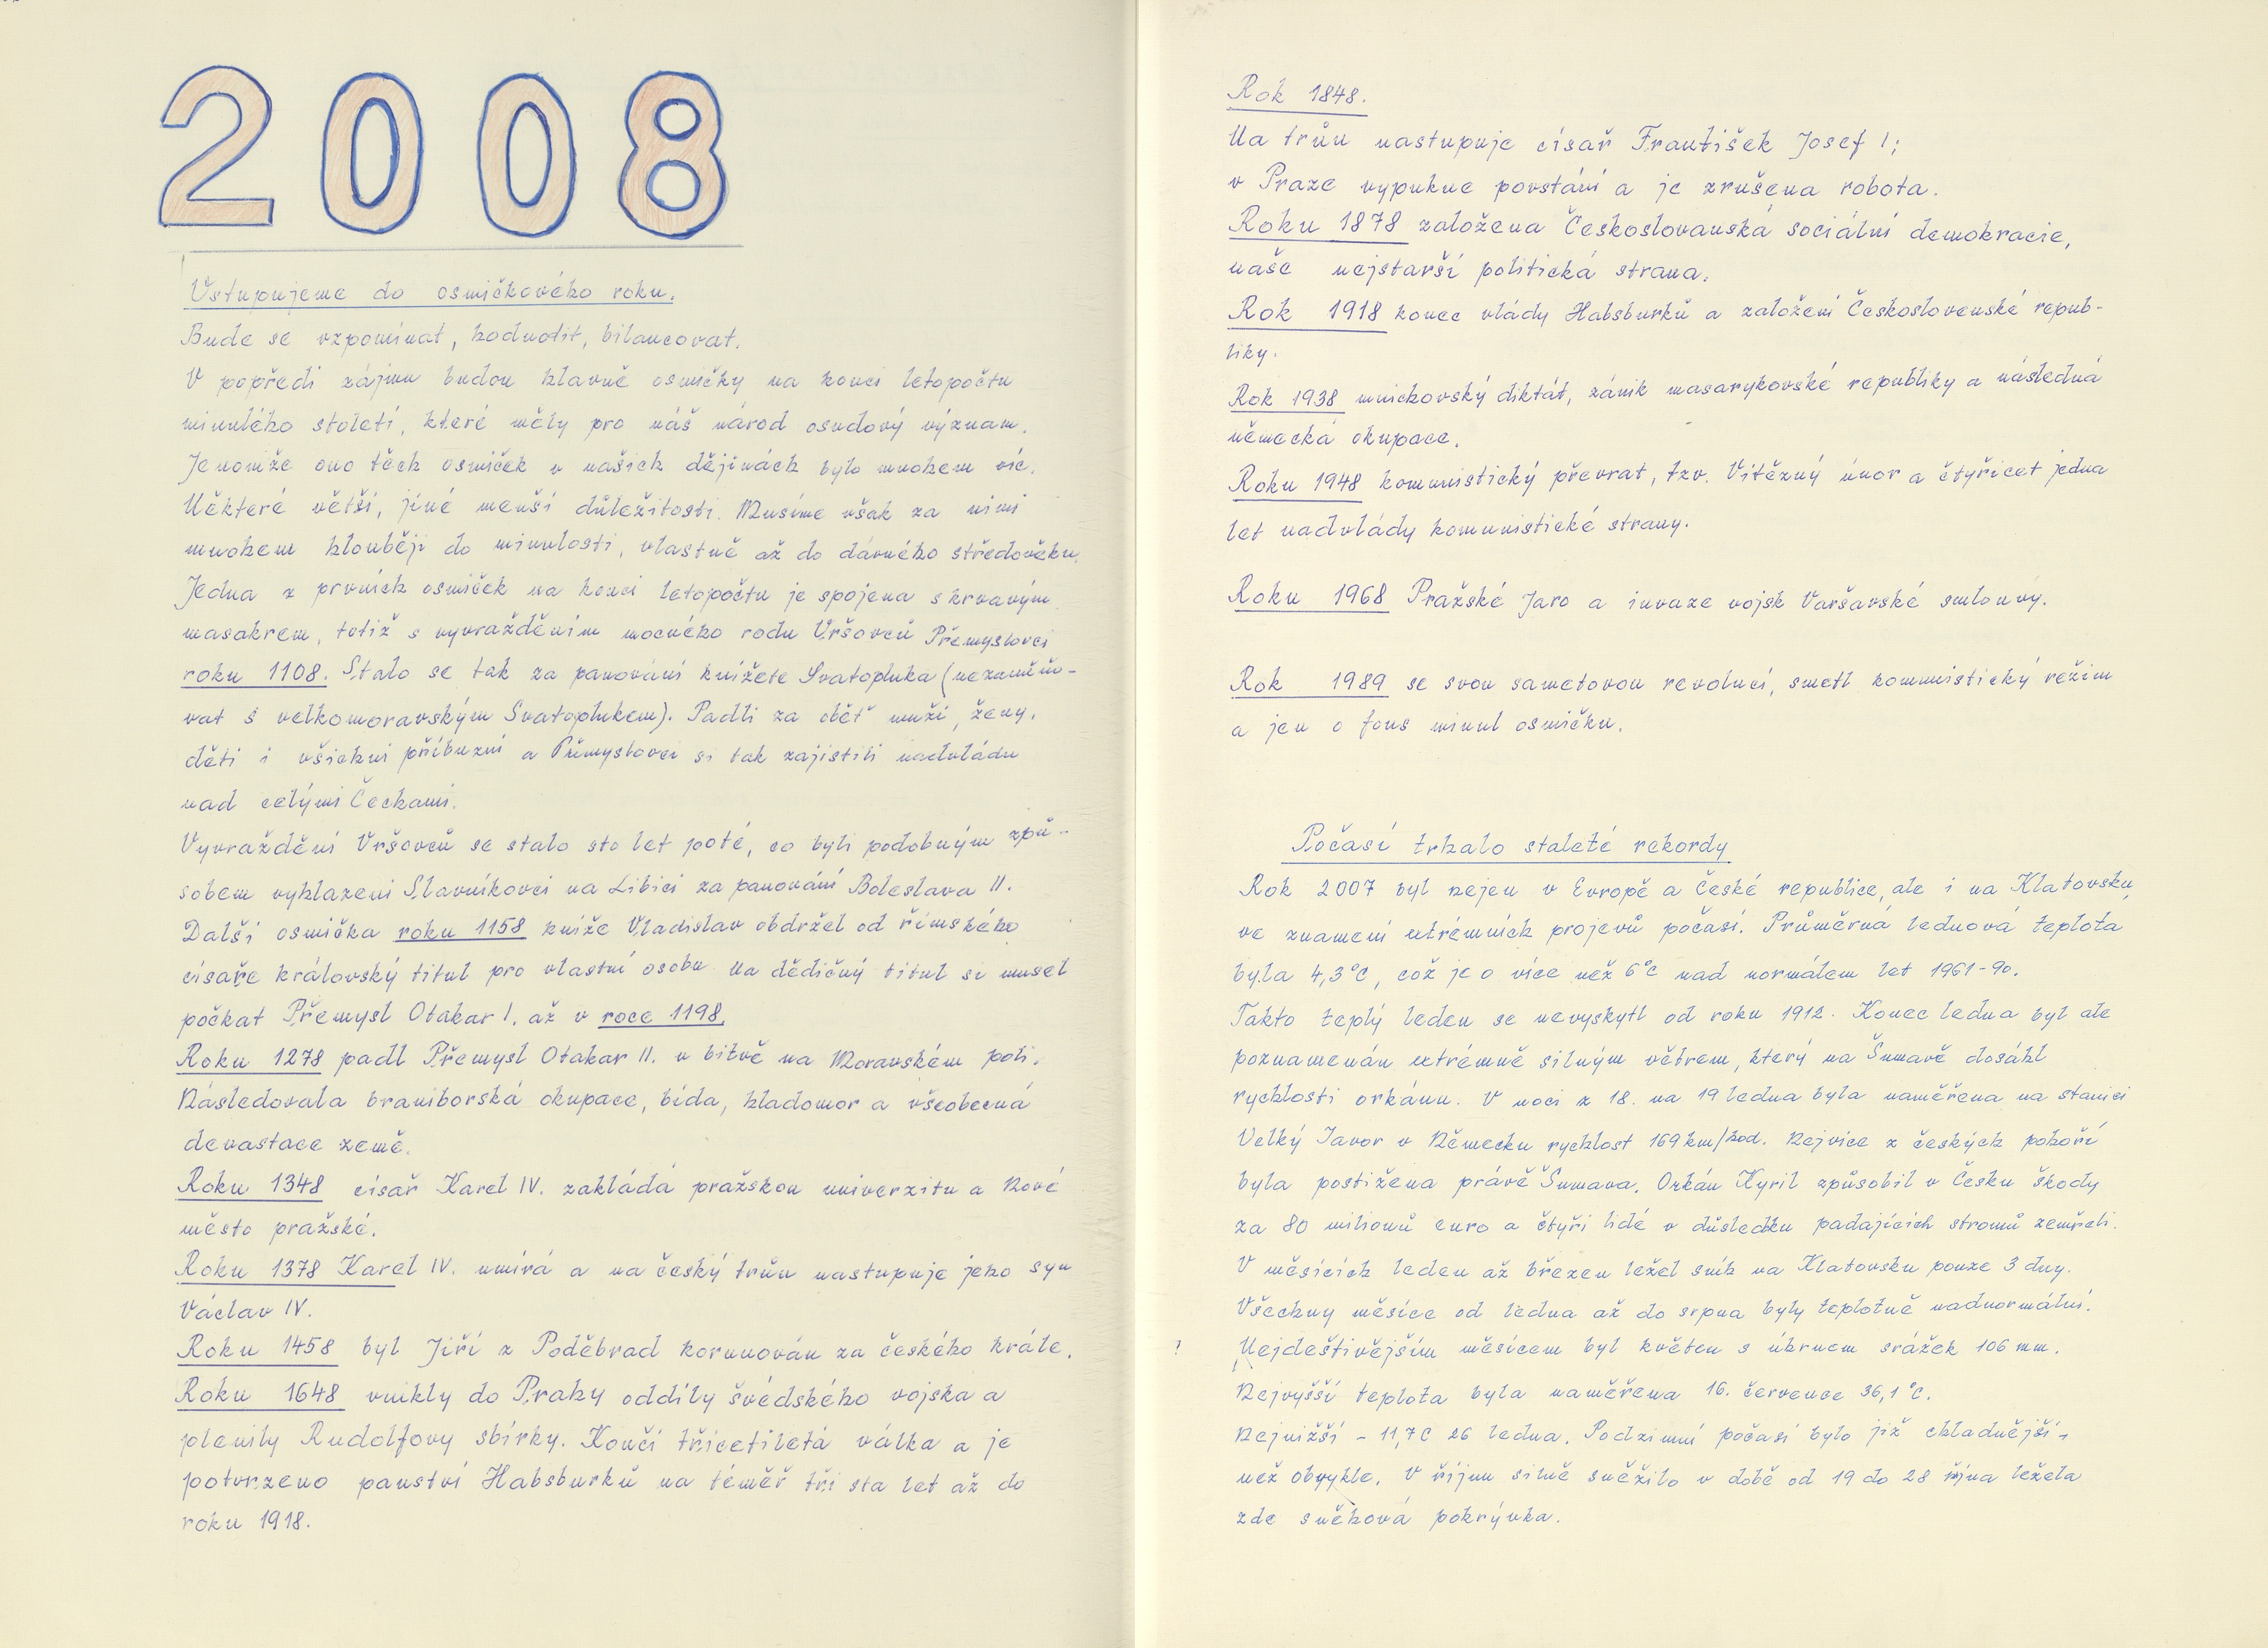 2008
Vstupujeme do osmičkového roku.
Bude se vzpomínat, hodnotit, bilancovat.
V popředí zájmu budou hlavně osmičky na konci letopočtu
minulého století, které měly pro náš národ osudový význam.
Jenomže ono těch osmiček v našich dějinách bylo mnohem víc.
Některé větší, jiné menší důležitosti. Musíme však za nimi
mnohem hlouběji do minulosti, vlastně až do dávného středověku.
Jedna z prvních osmiček na konci letopočtu je spojena s krvavým
masakrem, totiž s vyvražděním mocného rodu Vršovců Přemyslovci
roku 1108. Stalo se tak za panování knížete Svatopluka (nezaměňo-
vat s velkomoravským Svatoplukem). Padli za oběť muži, ženy,
děti i všichni příbuzní a Přmyslovci si tak zajistili nadvládu
nad celými Čechami.
Vyvraždění Vršovců se stalo sto let poté, co byli podobným způ-
sobem vyhlazeni Slavníkovci na Libici za panování Boleslava II.
Další osmička roku 1158 kníže Vladislav obdržel od římského
císaře královský titul pro vlastní osobu na dědičný titul si musel
počkat Přemysl Otakar I. až v roce 1198.
Roku 1278 padl Přemysl Otakar II. v bitvě na Moravském poli.
Následovala braniborská okupace, bída, hladomor a všeobecná
devastace země.
Roku 1348 císař Karel IV. zakládá pražskou univerzitu a Nové
město pražské.
Roku 1378 Karel IV. umírá a na český trůn nastupuje jeho syn
Václav IV.
Roku 1458 byl Jiří z Poděbrad korunován za českého krále.
Roku 1648 vnikly do Prahy oddíly švédského vojska a
plenily Rudolfovy sbírky. Končí třicetiletá válka a je
potvrzeno panství Habsburků na téměř tři sta let až do
roku 1918.
Rok 1848.
Na trůn nastupuje císař František Josef I;
v Praze vypukne povstání a je zrušena robota.
Roku 1878 založena Českoslovanská sociální demokracie,
naše nejstarší politická strana.
Rok 1918 konec vlády Habsburků a založení Československé repub-
liky.
Rok 1938 mnichovský diktát, zánik masarykovské republiky a následná
německá okupace.
Roku 1948 komunistický převrat, tzv. Vítězný únor a čtyřicet jedna
let nadvlády komunistické strany.
Roku 1968 Pražské Jaro a invaze vojsk Varšavské smlouvy.
Rok 1989 se svou sametovou revolucí, smetl kommunistický režim
a jen o fous minul osmičku.
Počasí trhalo staleté rekordy
Rok 2007 byl nejen v Evropě a České republice, ale i na Klatovsku,
ve znamení extrémních projevů počasí. Průměrná lednová teplota
byla 4,3°C, což je o více než 6°C nad normálem let 1961-90.
Takto teplý leden se nevyskytl od roku 1912. Konec ledna byl ale
poznamenán extrémně silným větrem, který na Šumavě dosáhl
rychlosti orkánu. V noci z 18. na 19 ledna byla naměřena na stanici
Velký Javor v Německu rychlost 169 km/hod. Nejvíce z českých pohoří
byla postižena právě Šumava. Orkán Kyril způsobil v Česku škody
za 80 milionů euro a čtyři lidé v důsledku padajících stromů zemřeli.
V měsících leden až březen ležel sníh na Klatovsku pouze 3 dny.
Všechny měsíce od ledna až do srpna byly teplotně nadnormální.
? Nejdeštivějším měsícem byl květen s úhrnem srážek 106 mm.
Nejvyšší teplota byla naměřena 16. července 36,1 °C.
Nejnižší - 11,7C 26 ledna. Podzimní počasí bylo již chladnější,
než obvykle. V říjnu silně sněžilo v době od 19 do 28 října ležela
zde sněhová pokrývka.